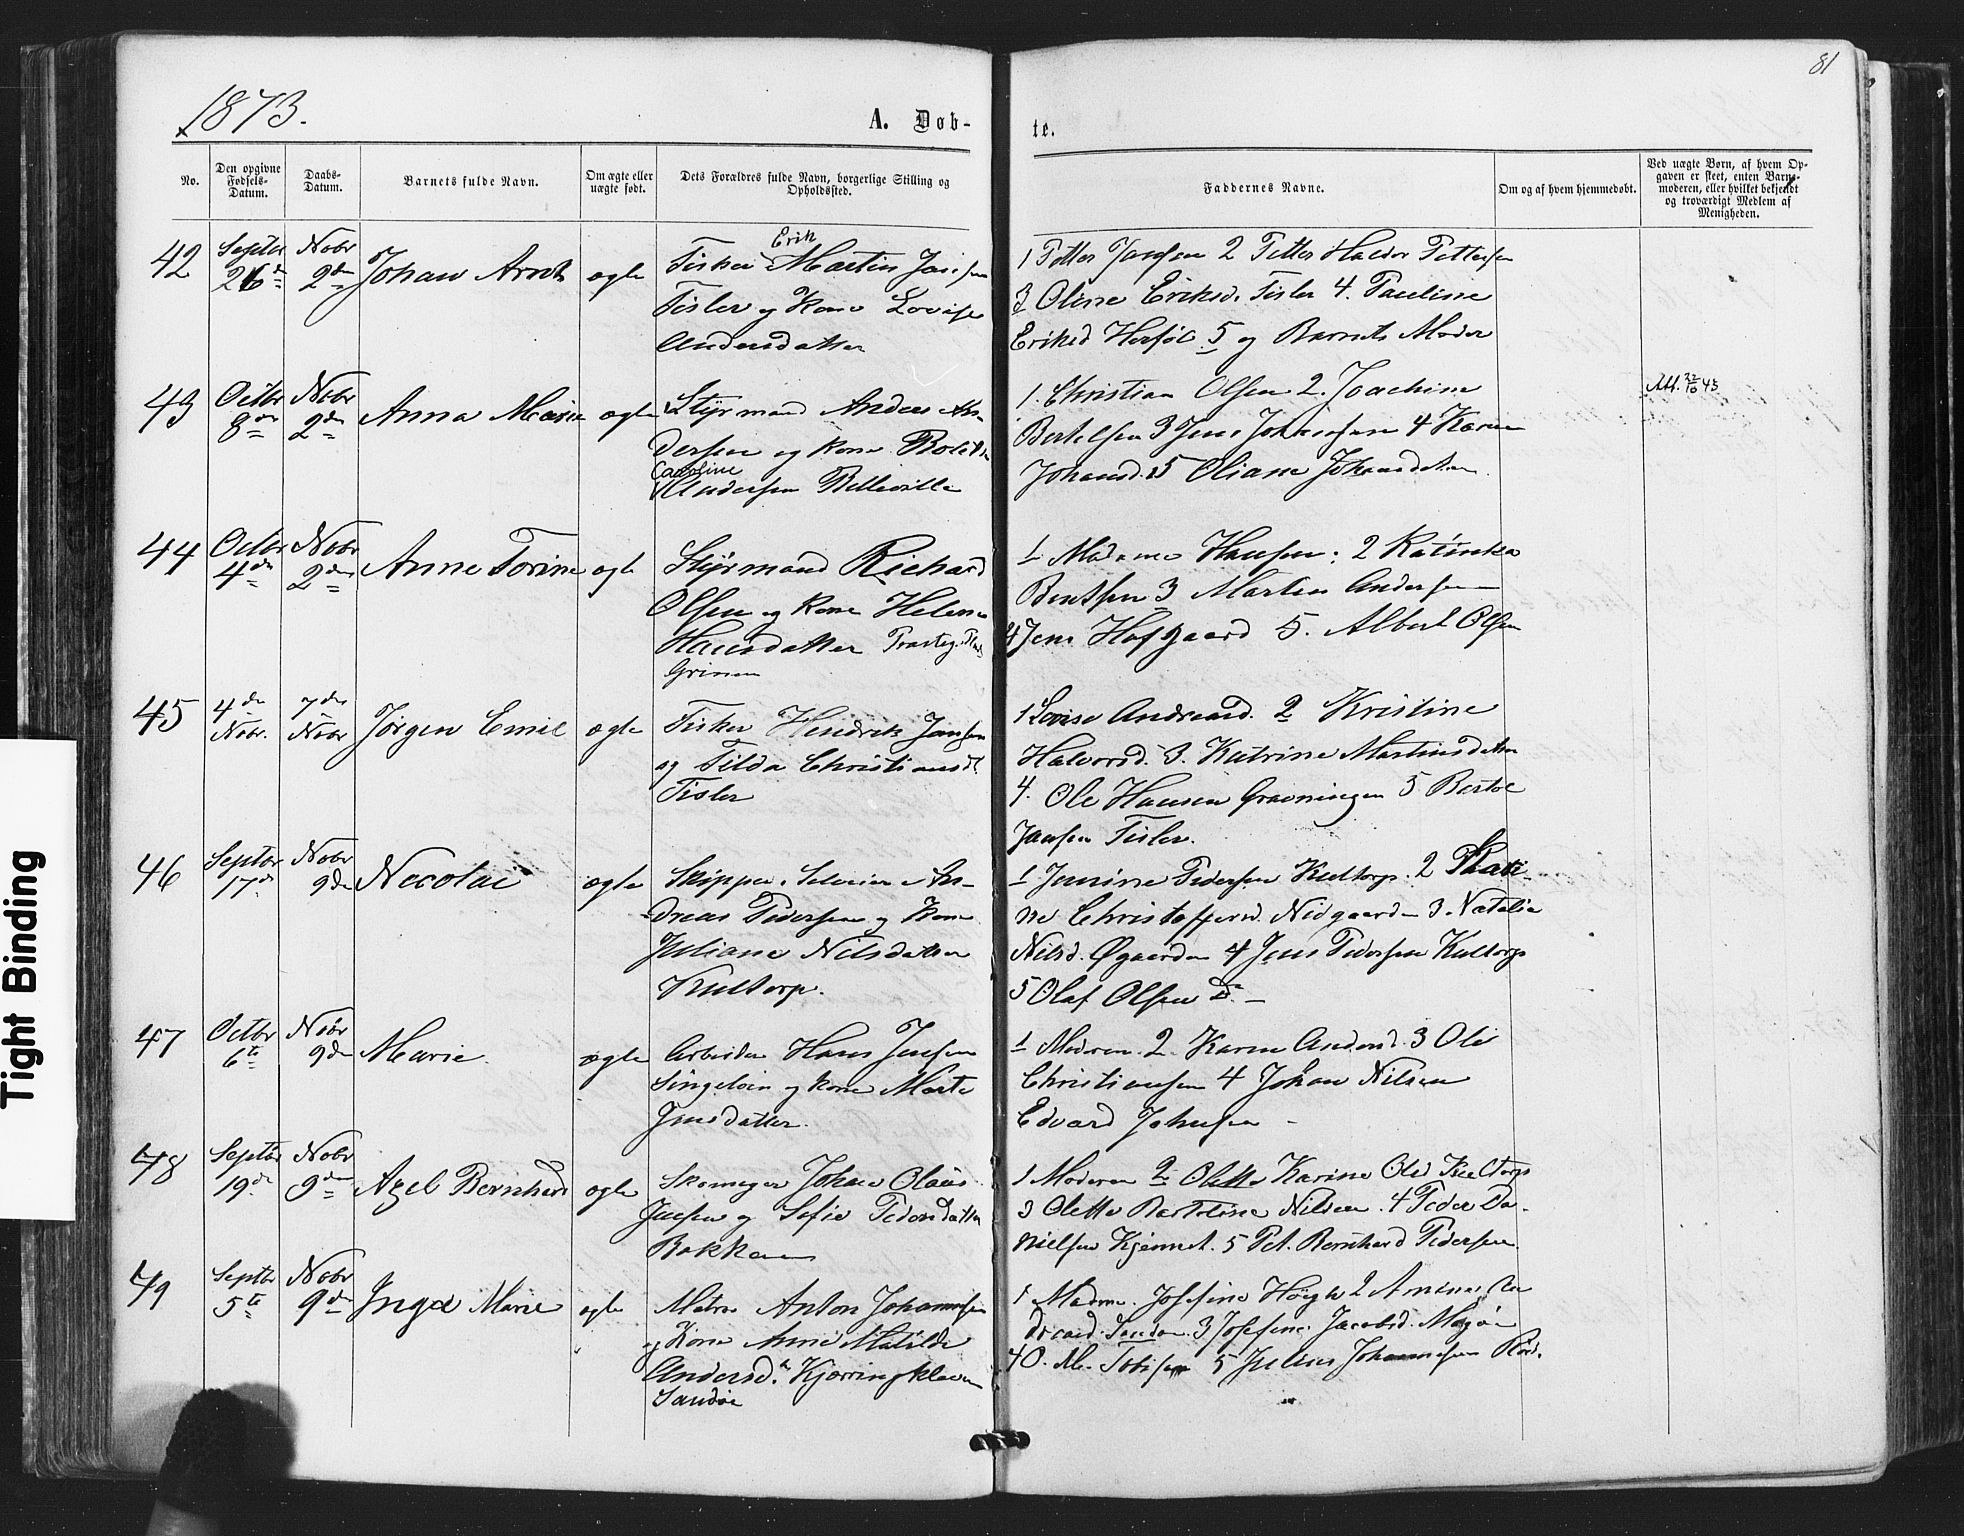 81
1873.
A. Døb-
te.
No.
Den opgivne Fødsels-Datum.
Daabs-Datum.
Barnets fulde Navn.
Om ægte eller uægte født.
Dets Forældres fulde Navn, borgerlige Stilling og Opholdssted.
Faddernes Navne.
Om og af hvem hjemmedøbt.
Ved uægte Børn, af hvem Opgaven er skeet, enten Barnemoderen, eller hvilket bekjendt og troværdigt Medlem af Menigheden.
42 Septbr 26de Nobr 2den Johan Arnt ægte Fisker Erik Martin Jansen
Tisler og Kone Lovise
Andersdatter
1 Petter Jansen 2 Petter Haldor Pettersen
3 Oline Eriksd. Tisler 4. Pauline
Eriksd Herføl 5 og Barnets Moder
43 Octbr 8de Nobr 2den Anna Marie ægte Styrmand Anders An-
dersen og Kone
Caroline Andersen Belleville
1. Christian Olsen 2. Joachim
Bertelsen 3 Jens Johansen 4 Karen
Johansd. 5 Oliane Johansdatter
Att. 22/10 43
44 Octbr 4de Nobr 2den Anne Torine ægte Styrmand Richard
Olsen og Kone Helene
Hansdatter
Grimen
1 Madame Hansen. 2 Katinka
Bentsen 3 Martin Andersen
4 Jens Hofgaard 5. Albert Olsen
45 4de Nobr. 7de Nobr Jørgen Emil ægte Fisker Hendrik Jansen
og Tilda Christiansd
Tisler
1 Lovise Andreasd. 2 Kristine
Halvorsd. 3. Katrine Martinsdatter
4. Ole Hansen Gravningen 5 Bertol
Jansen Tisler.
46 Septbr 17de Nobr 9de Nicolai ægte Skipper An-
dreas Pedersen og Kone
Juliane Nilsdatter
Kultorp.
1 Janine Pedersen Kultorp. 2
ne Christoffersd. Nidgaarden 3. Natalia
Nilsd. Øgaarden 4 Jens Pedersen Kultorp
5 Olaf Olsen Do. —
47 Octbr 6te Nobr 9de Marie. ægte Arbeider Hans Jensen
Singeløen og Kone Marte
Jensdatter.
1 Moderen 2. Karen Andersd. 3 Ole
Christiansen 4 Johan Nilsen
Edvard Johnsen -
48 Septbr 19de Nobr 9de Axel Bernhard ægte Skomager Johan Olaus
Jensen og Sofie Pedersdatter
Bakken
1 Moderen 2 Olette Karine Olsd Kultorp
3 Olette Bertoline Nilsen. 4 Peder Da-
nielsen Kjennet. 5 Pet. Bernhard Pedersen.
49 Septbr 5te Nobr 9de Inga Marie ægte Matros Anton Johannesen
og Kone Anne Matilde
Andersd. Kjærringkleven
Sandøe
1 Madme. Josefine Høegh 2
3 Josefine Jacobsd.
4 O. M. Tobisen 5 Julius Johannesen
Tight Binding